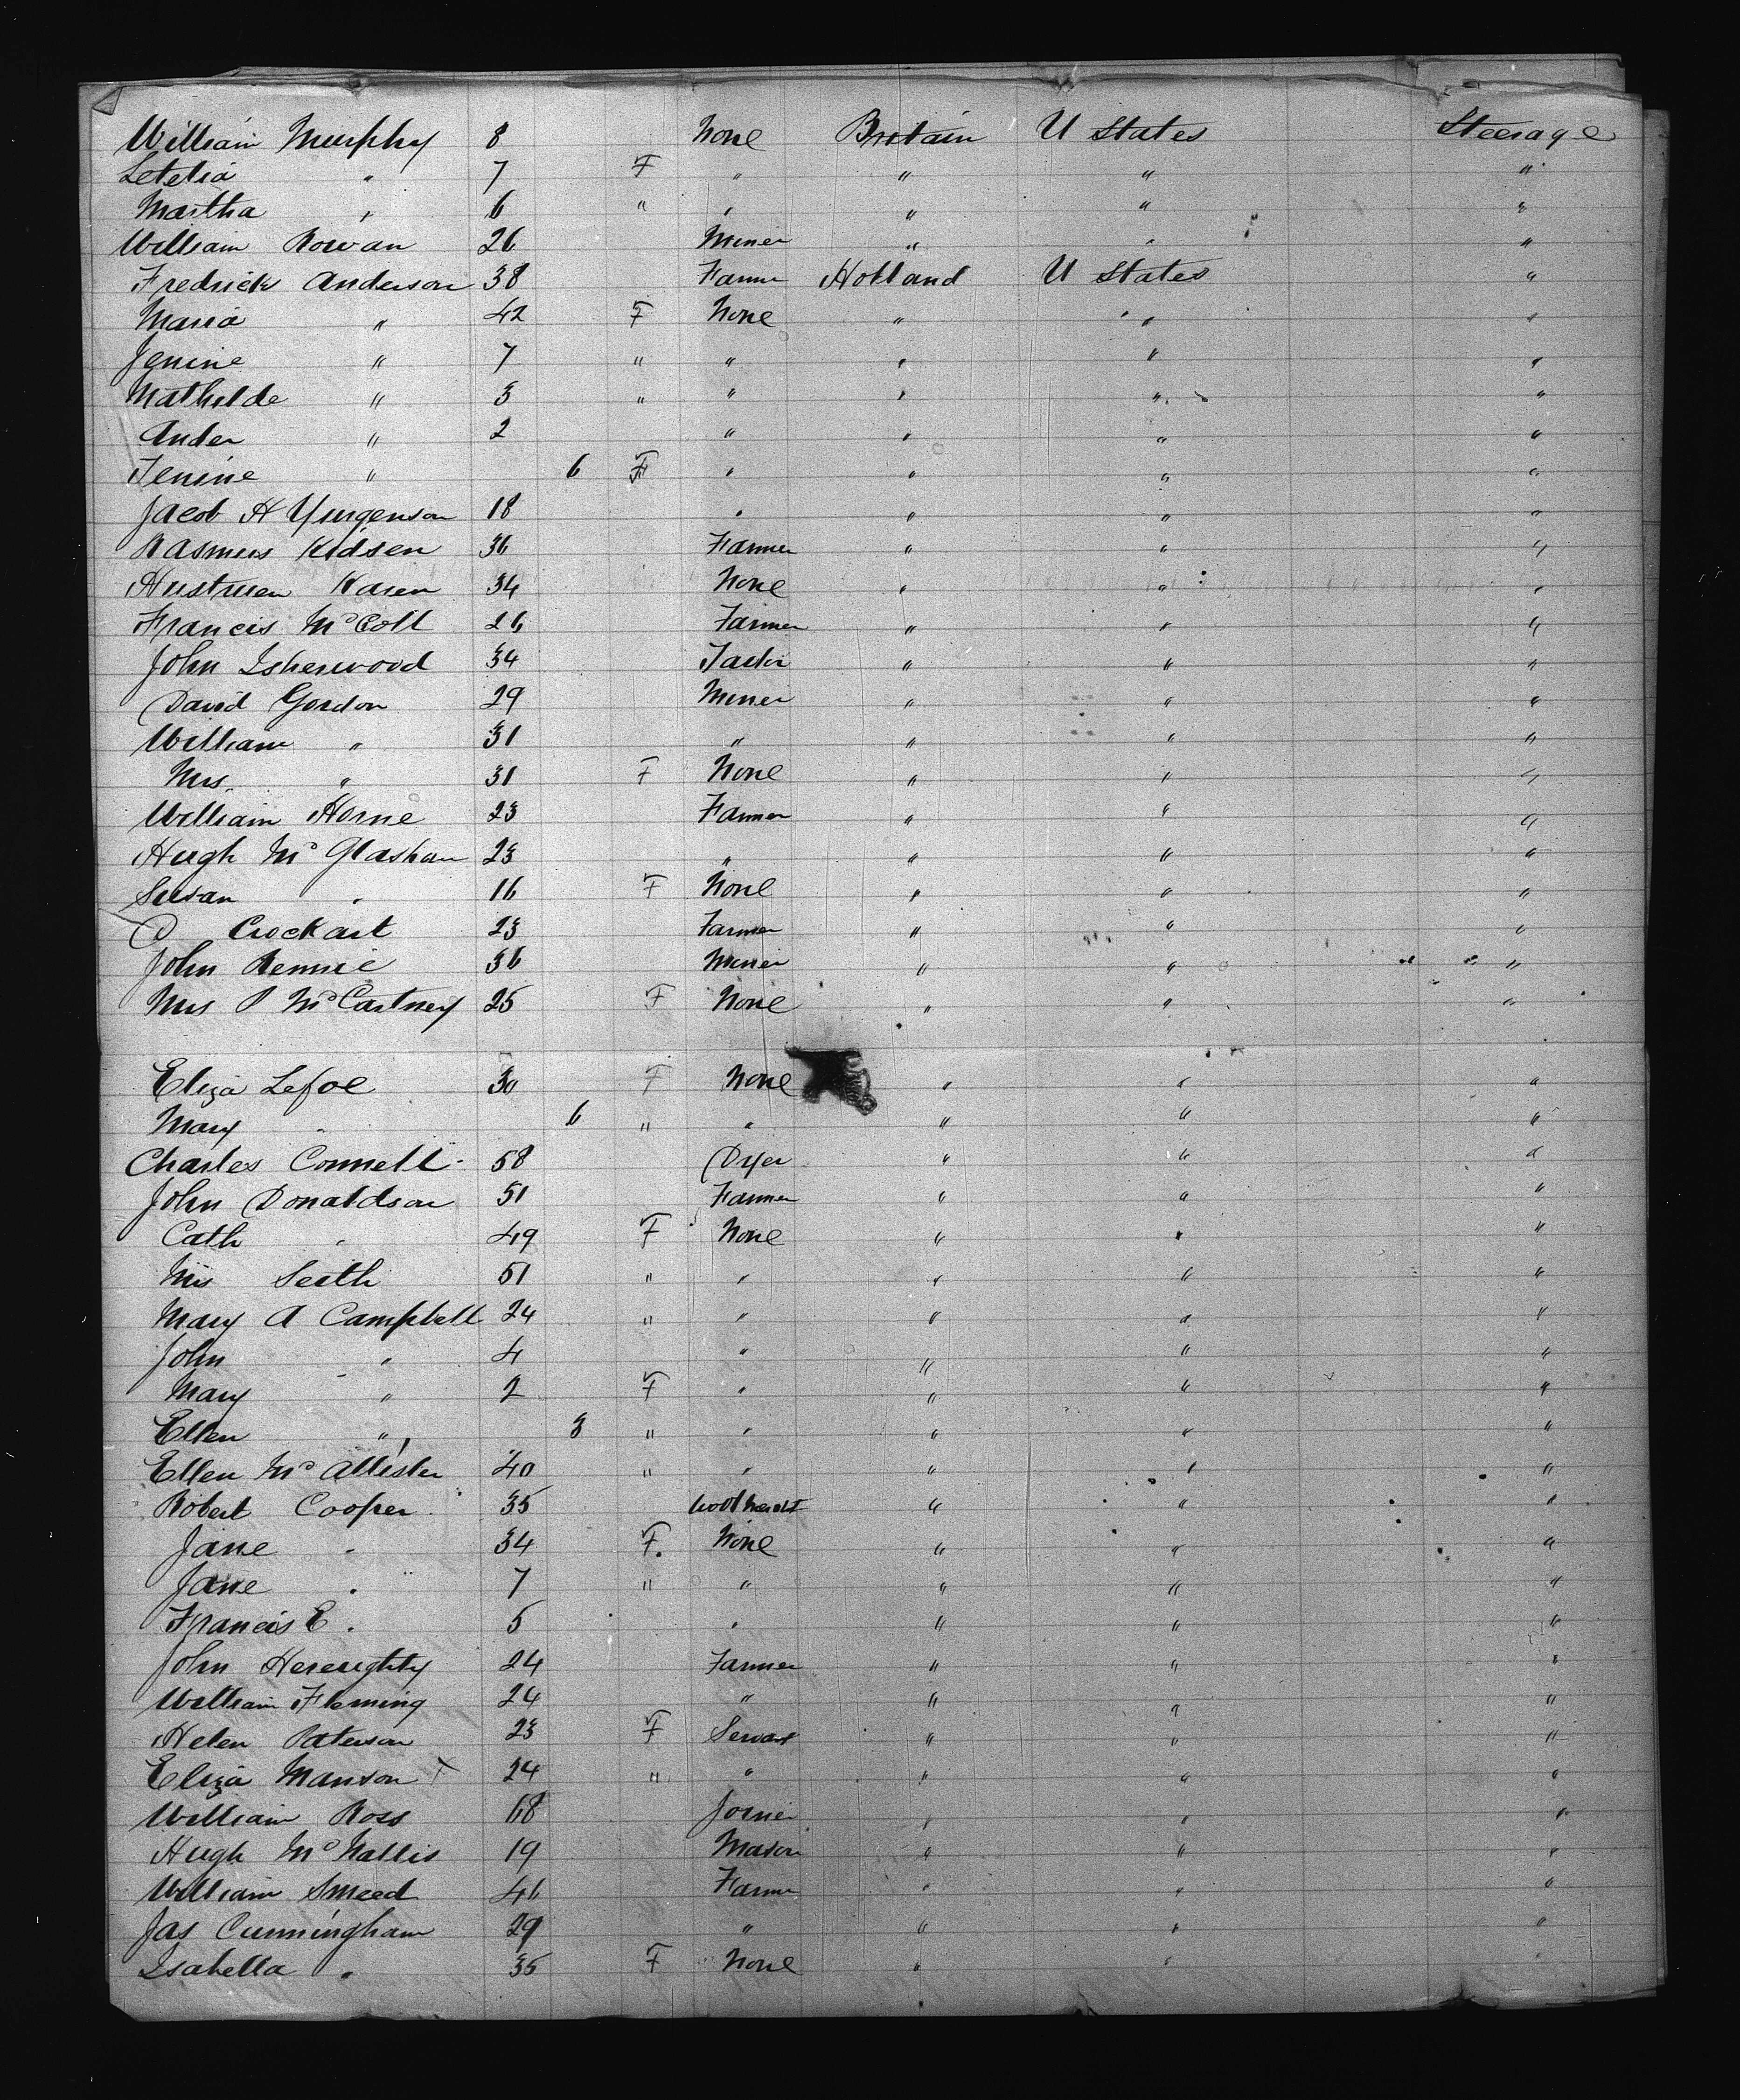 William Murphy 8 None Britain U States Steerage
Letetia " 7 F " " " "
Martha " 6 " " " " "
William Rowan 26 Miner " " "
Fredrick Anderson 38 Farmer Holland U States "
Maria " 42 F None " " "
Jenine " 7 " " " " "
Mathilde " 3 " " " " "
Ander " 2 " " " "
Jenine " 6 F " " " "
Jacob H Yurgenson 18 " " " "
Rasmus Kidsen 36 Farmer " " "
Karen 34 None " " "
Francis McColl 26 Farmer " " "
John Isherwood 34 Tailor " " "
David Gordon 29 Miner " " "
William " 31 " " " "
Mrs. " 31 F None " " "
William Horne 23 Farmer " " "
Hugh McGlashan 23 " " " "
Susan " 16 F None " " "
Crockart 23 Farmer " " "
John Rennie 36 Miner " " "
Mrs P McCartney 25 F None " " "
Eliza Lefoe 30 F None " " "
Mary " 6 " " " " "
Charles Connell 58 Dyer " " "
John Donaldson 51 Farmer " " "
Cath " 49 F None " " "
Mrs Seith 51 " " " " "
Mary A Campbell 24 " " " " "
John " 4 " " " "
Mary " 2 F " " " "
Ellen " 3 " " " " "
Ellen McAllister 40 " " " " "
Robert Cooper 35 " " "
Jane " 34 F. None " " "
Jane " 7 " " " " "
Francis E " 5 " " " "
John Hereughty 24 Farmer " " "
William Fleming 24 " " " "
Helen Paterson 23 F Servant " " "
Eliza Manson X 24 " " " " "
William Ross 68 Joiner " " "
Hugh McNallis 19 Mason " " "
William Smeed 46 Farmer " " "
Jas Cunningham 29 " " " "
Isabella " 35 F None " " "